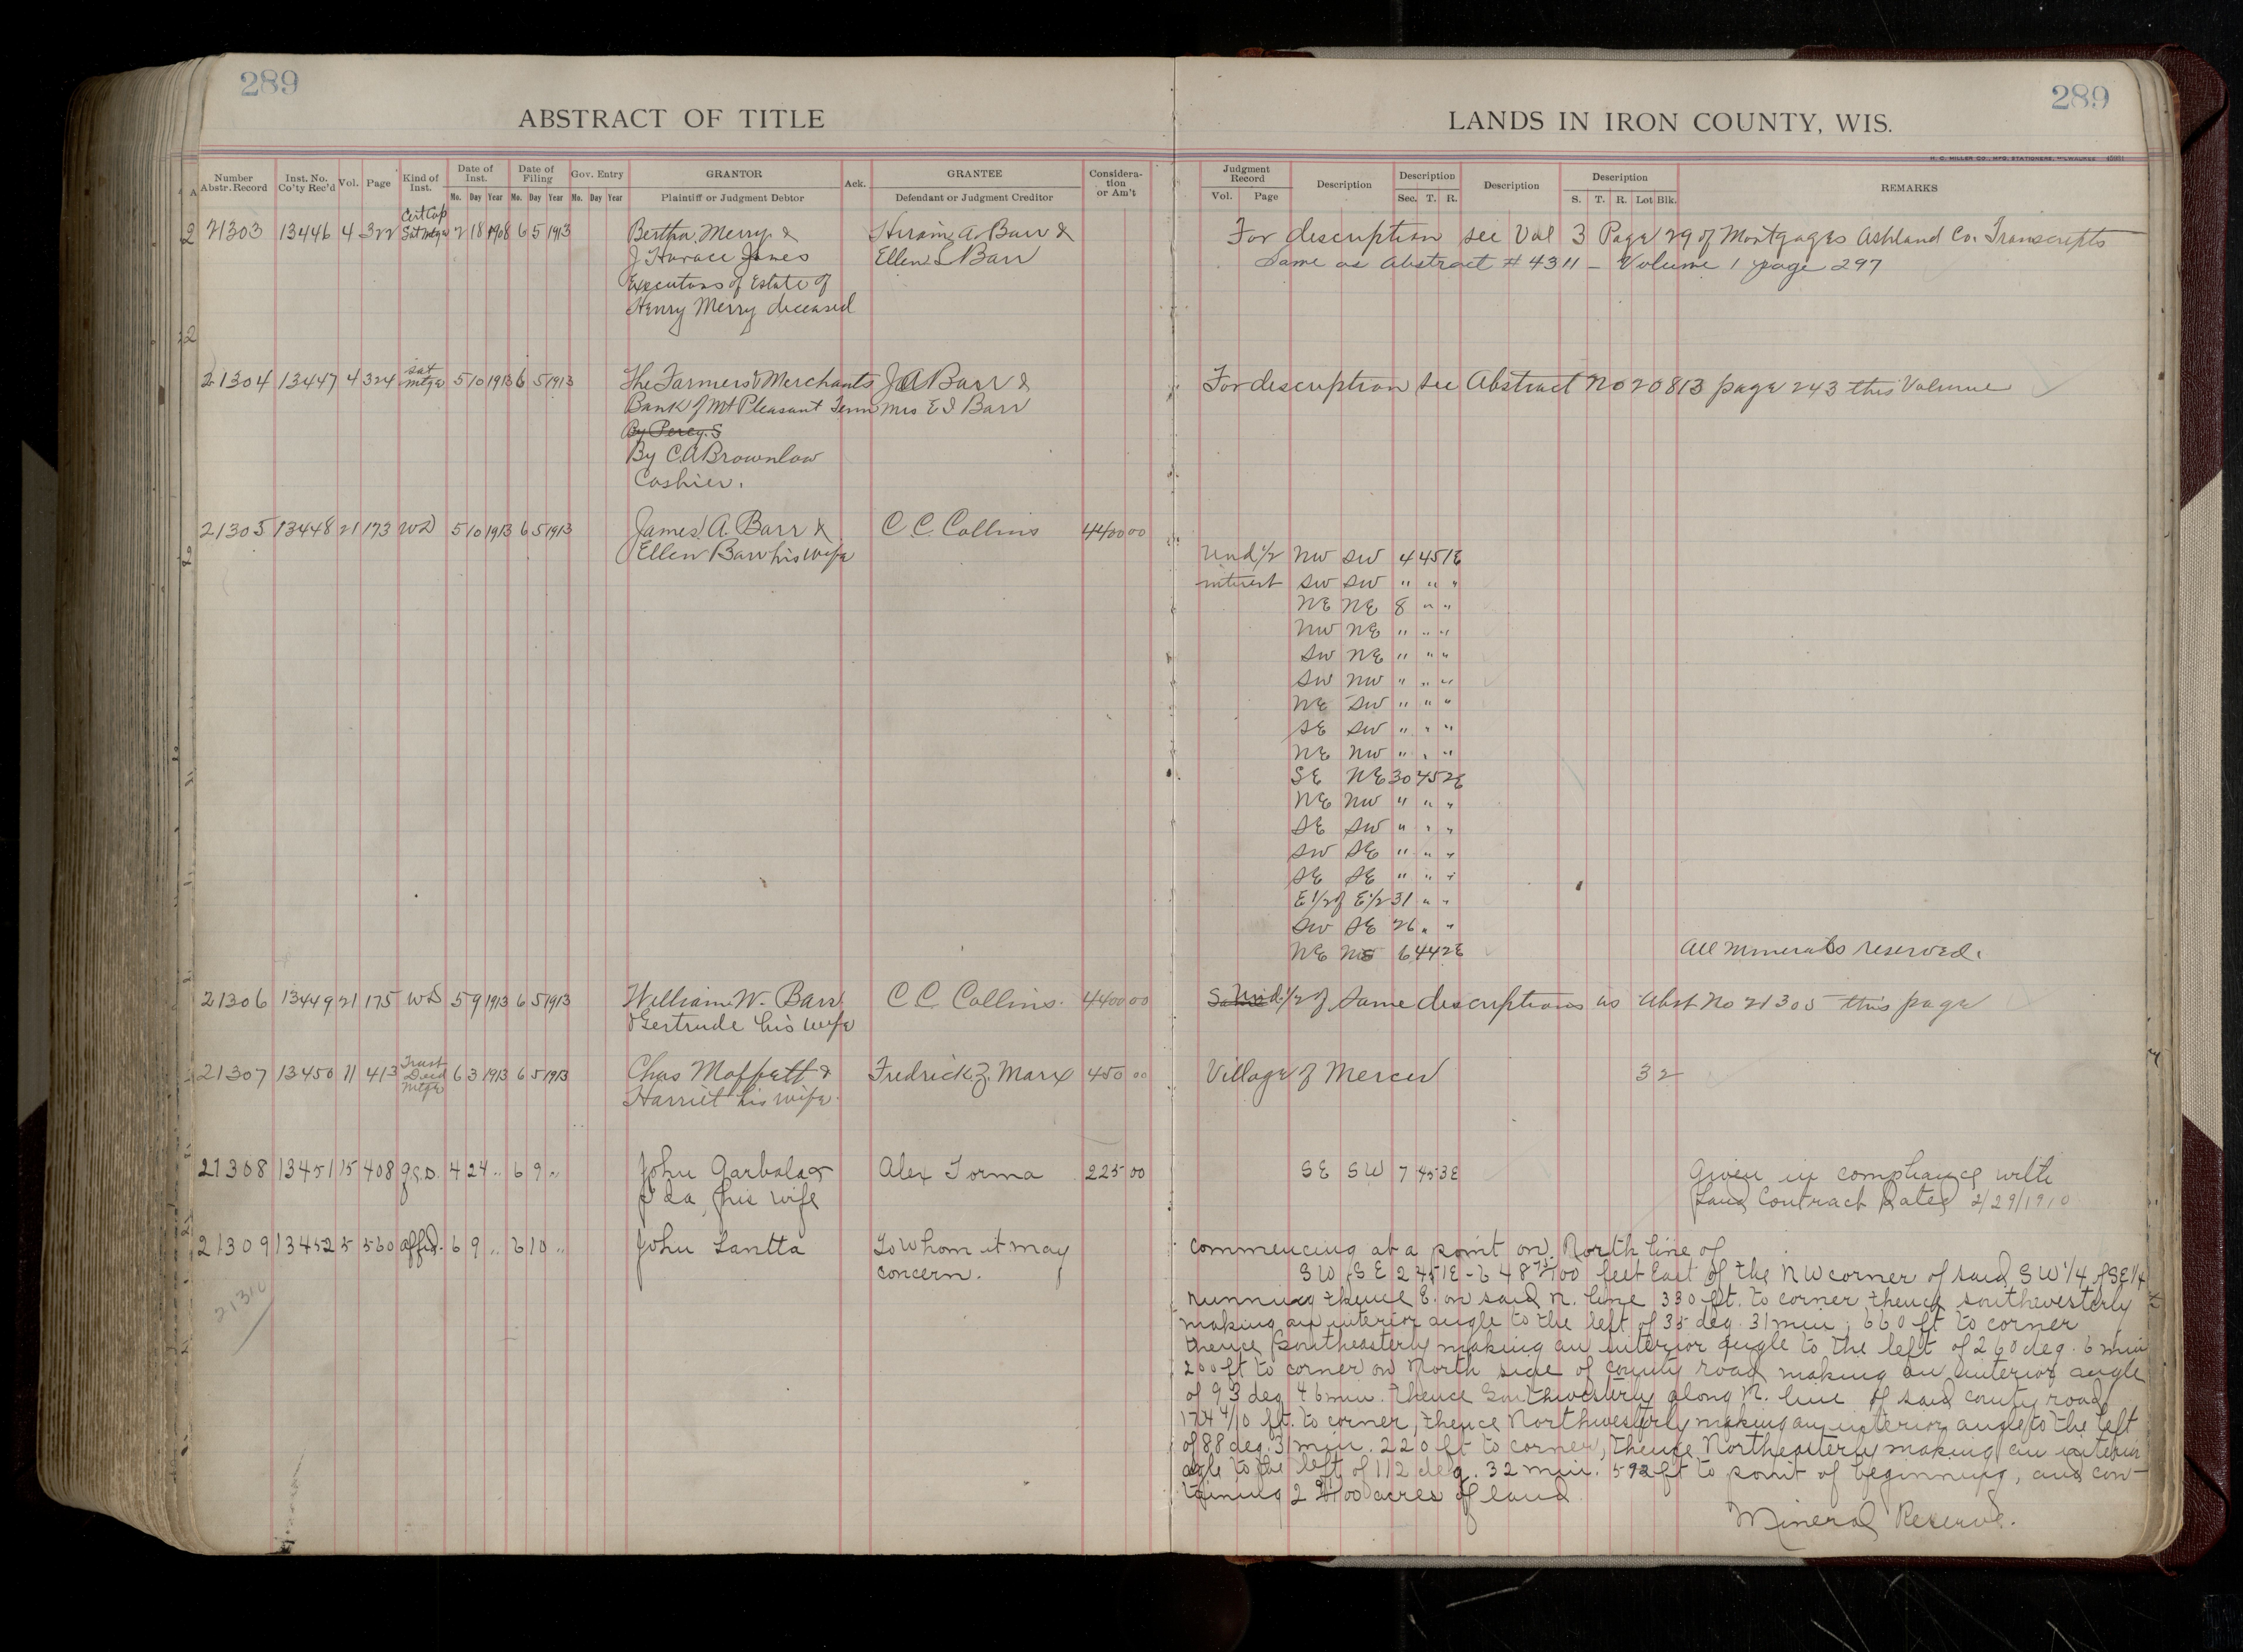 289
289
ABSTRACT OF TITLE
LANDS IN IRON COUNTY, WIS.
H. C. MILLER CO., MFG. STATIONERS, MILWAUKEE
Number Abstr. Record
Inst. No. Co'ty Rec'd
Vol.
Page
Kind of Inst.
Date of Inst.
Mo. Day Year
Date of Filing
Mo. Day Year
Gov. Entry
Mo. Day Year
GRANTOR
Plaintiff or Judgment Debtor
Ack.
GRANTEE
Defendant or Judgment Creditor
Consideration or Am't
Judgment Record
Vol. Page
Description
Description
Sec. T. R.
Description
Description
S. T. R. Lot Blk.
REMARKS
Cert Cop
21303 13446 4 322 Sat Mtge 2 18 1908 6 5 1913 Bertha Merry & Hiram A. Barr & For description see Vol 3 Page 29 of Mortgages Ashland Co. Transcripts
J Horace Jones Ellen S Barr Same as Abstract # 4311 - Volume 1 page 297
Executors of Estate of
Henry Merry deceased
21304 13447 4 324 Sat Mtge 5 10 1913 6 5 1913 The Farmers & Merchants J A Barr & For description see Abstract No 20813 page 243 this Volume
Bank of Mt Pleasant Tenn Mrs E S Barr
By Percy. S
By C.A Brownlow
Cashier.
21305 13448 21 173 WD 5 10 1913 6 5 1913 James A. Barr & C. C. Collins 4400 00
Ellen Barr his wife Und 1/2 NW SW 4 45 1E
interest SW SW " " "
NE NE 8 " "
NW NE " " "
SW NE " " "
SW NW " " "
NE SW " " "
SE SW " " "
NE NW " " "
SE NE 30 45 2E
NE NW " " "
SE SW " " "
SW SE " " "
SE SE " " "
E 1/2 of E 1/2 31 " "
SW SE 26 " "
NE 6 44 2E All minerals reserved.
21306 13449 21 175 WD 5 9 1913 6 5 1913 William W. Barr C C Collins. 4400 00 Und. 1/2 of same descriptions as Abst No 21305 this page
& Gertrude his wife
21307 13450 11 413 Trust Deed Mtge 6 3 1913 6 5 1913 Chas Moffett & Fredrick Z. Marx 450 00 Village of Mercer 32
Harriet his wife.
21308 13451 15 408 4 24 " 6 9 " John Garbala & Alex Torma 225 00 SE SW 7 45 3E Given in compliance with
Ida, his wife Land Contract Dated 2/29/1910
21309 13452 5 560 Affid. 6 9 " 6 10 " John Lantta To Whom it may commencing at a point on North line of
concern. SW SE 2 45 1E - 648 75/100 feet East of the NW corner of said SW 1/4 of SE 1/4
21310
running thence E. on said N. line 330 ft. to corner thence southwesterly
making an interior angle to the left of 35 deg. 31 min; 660 ft to corner
thence Southeasterly making an interior angle to the left of 260 deg. 6 min
200 ft to corner on North side of county road making an interior angle
of 93 deg 46 min. thence Southwesterly along N. line of said county road
174 4/10 ft. to corner, thence Northwesterly making an interior angle to the left
of 88 deg. 31 min. 220 ft to corner, thence Northeasterly making an interior
angle to the left of 112 deg. 32 min. 592 ft to point of beginning, and con-
taining 2 acres of land.
Mineral Reserve.